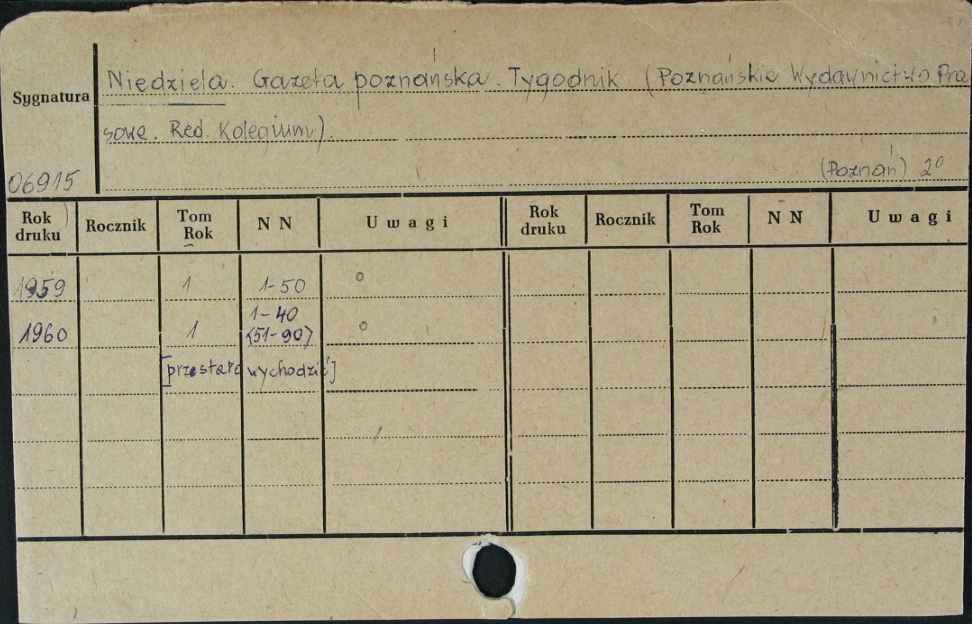 Sygnatura
Niedziela. Gazeta poznańska. Tygodnik (Poznańskie Wydawnictwo Pra
sowe. Red. Kolegium).
06915
(Poznań) 2°
Rok druku Rocznik Tom Rok NN Uwagi Rok druku Rocznik Tom Rok NN Uwagi
1959 1 1-50 o
1-40
1960 1 (51-90) o
[przestała wychodzić]